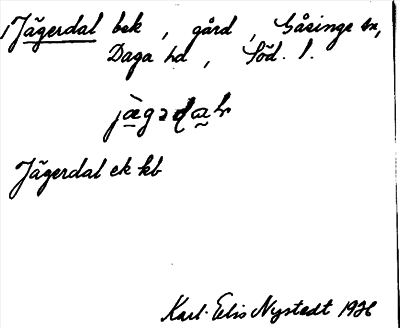 Jägerdal bek, gård, Gåsinge sn,
Daga hd, Söd. l.
Jägerdal ek kb
Karl-Elis Nystedt 1926